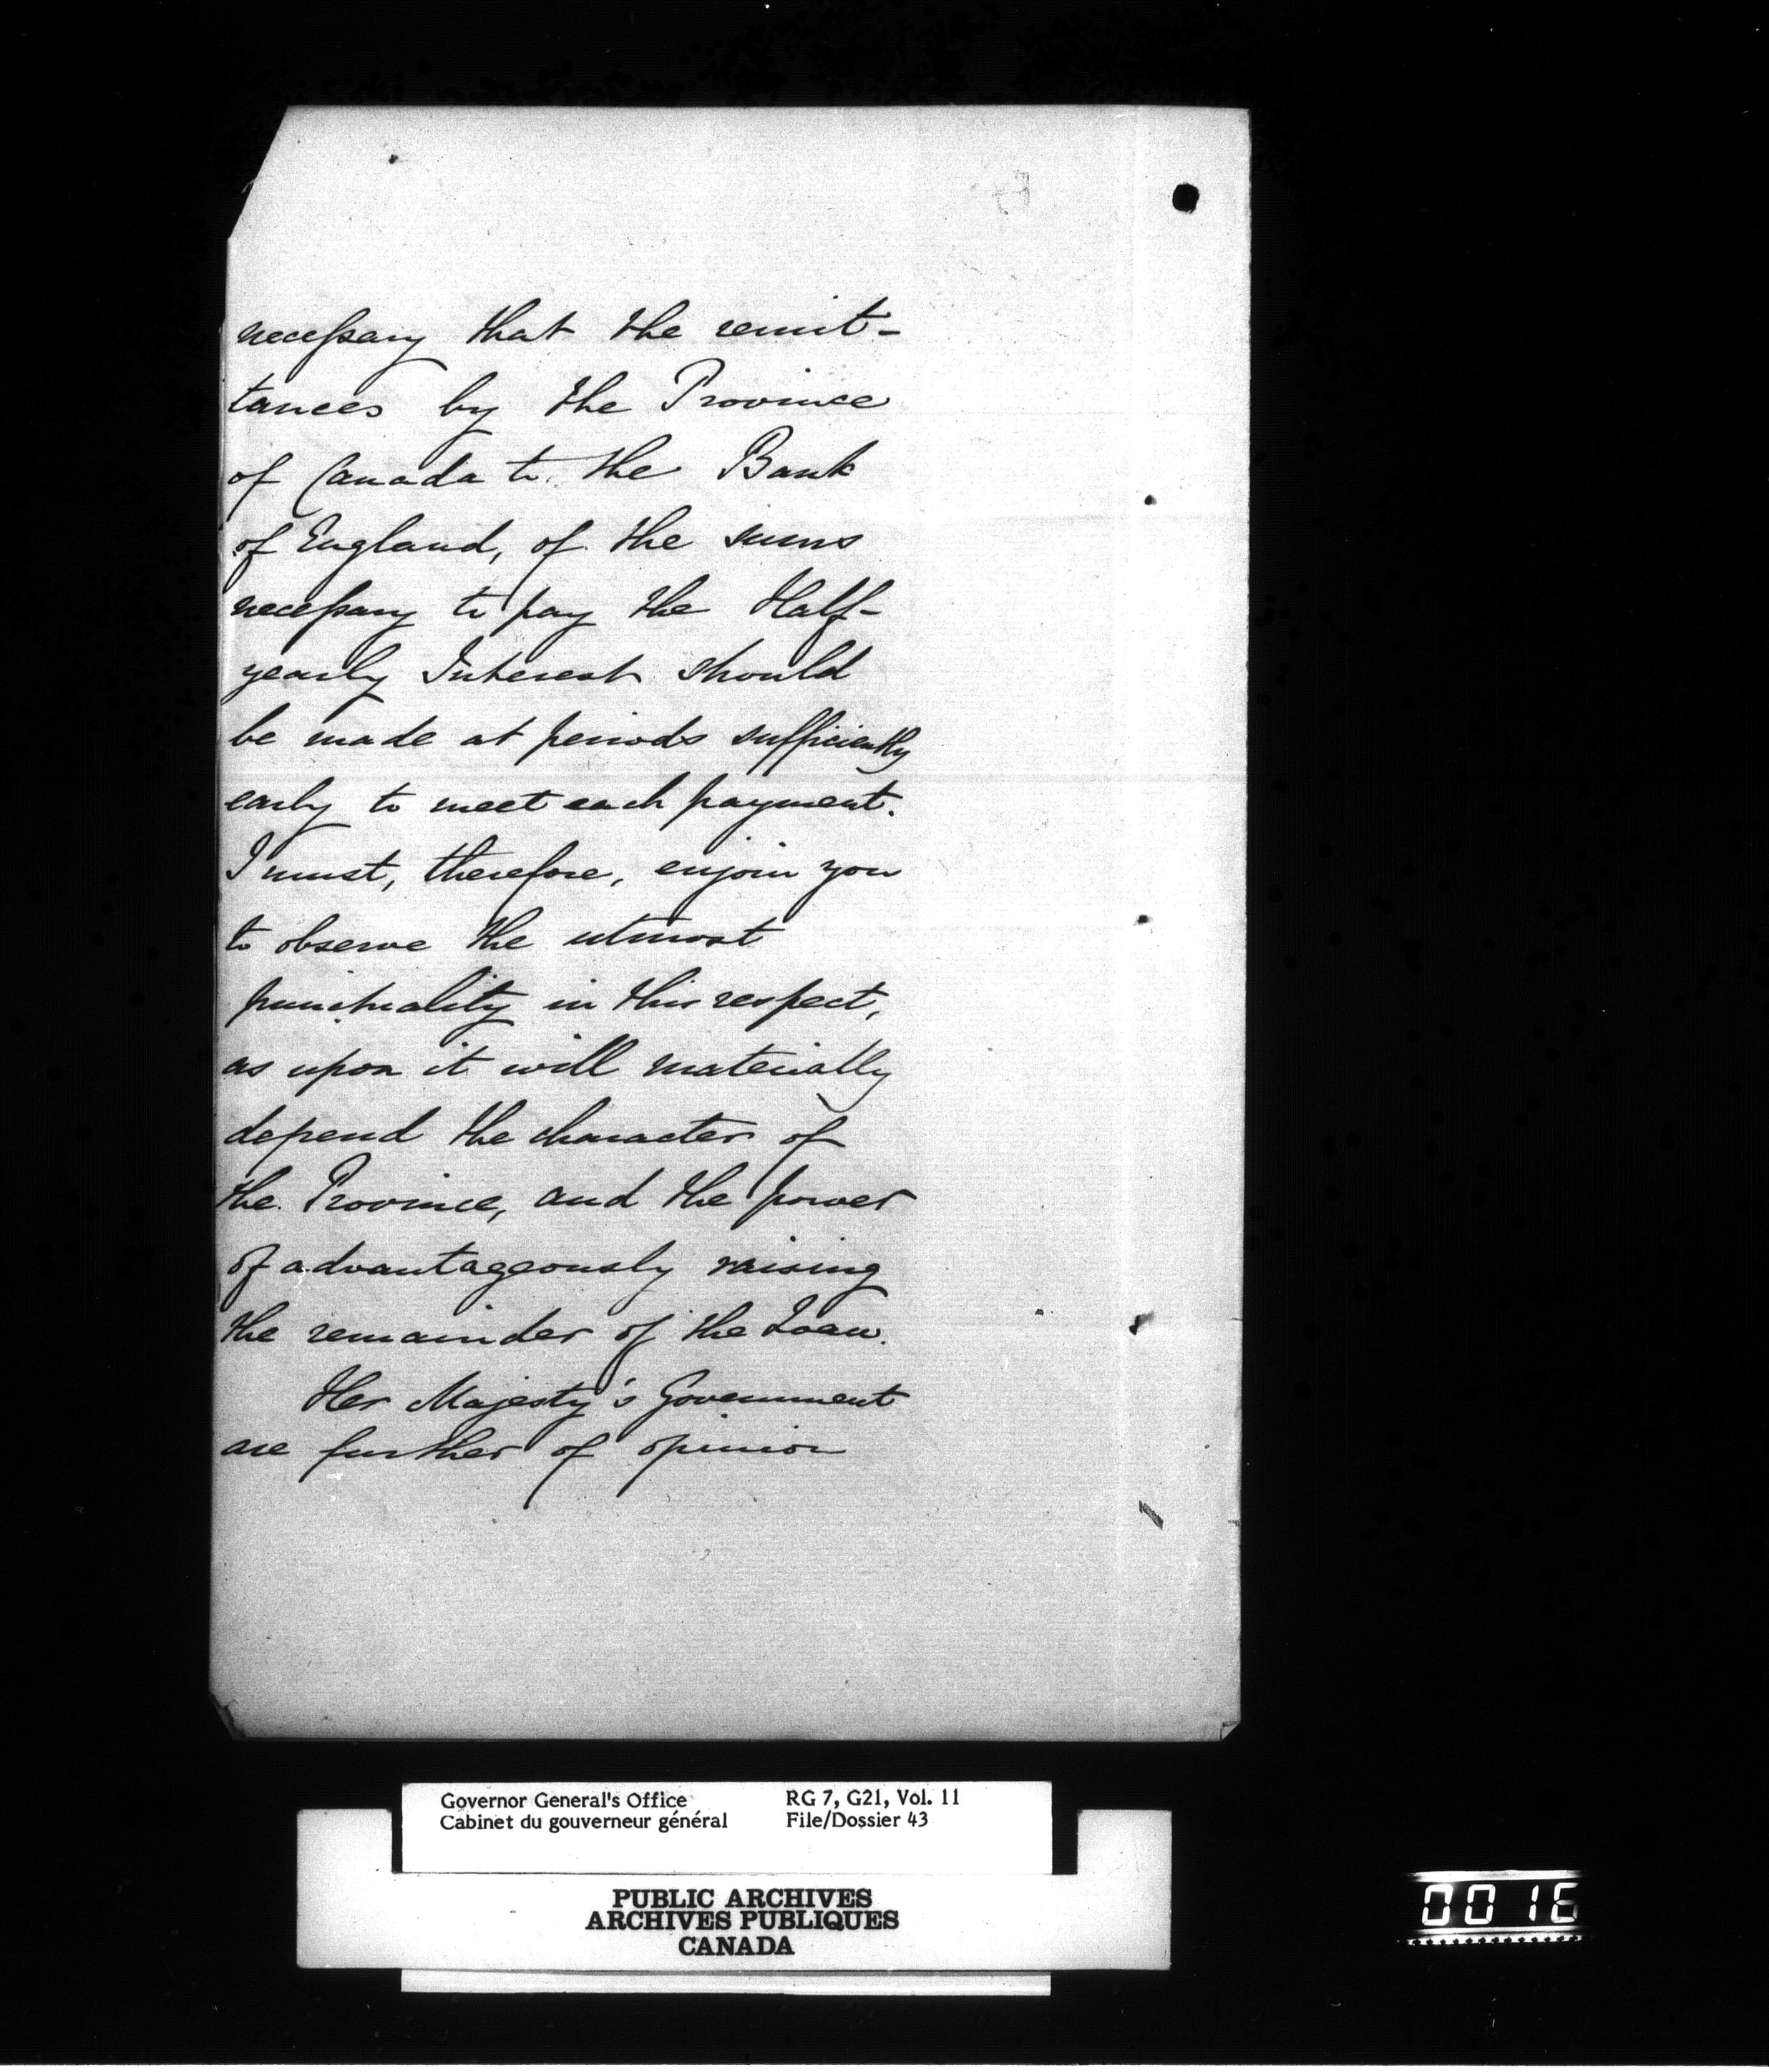 necessary that the remit-
tances by the Province
of Canada to the Bank
of England, of the sums
necessary to pay the Half-
yearly Interest should
be made at periods sufficiently
early to meet each payment.
I must, therefore, enjoin you
to observe the utmost
punctuality in this respect,
as upon it will materially
depend the character of
the Province, and the power
of advantageously raising
the remainder of the Loan.
Her Majesty's Government
are further of opinion
Governor General's Office RG 7, G21, Vol. 11
Cabinet du gouverneur général File/Dossier 43
PUBLIC ARCHIVES
ARCHIVES PUBLIQUES
CANADA